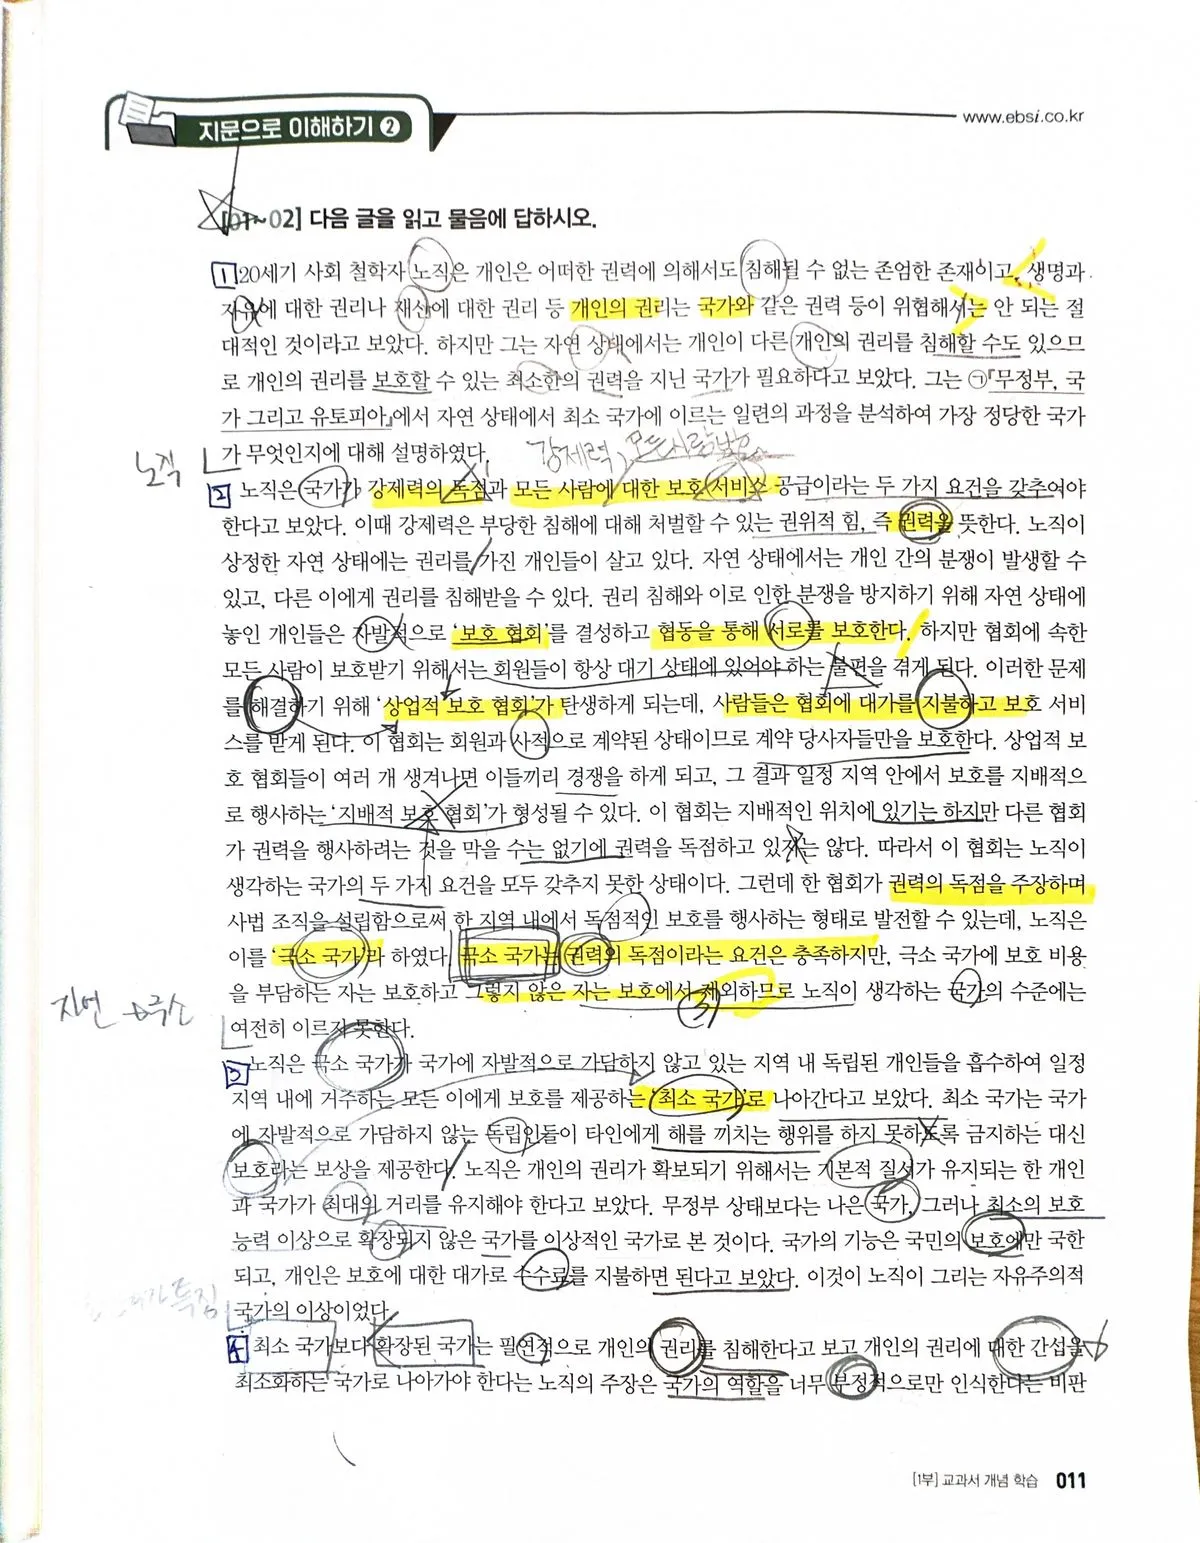 지문으로 이해하기 2
www.ebsi.co.kr
[01~02] 다음 글을 읽고 물음에 답하시오.
1 20세기 사회 철학자 노직은 개인은 어떠한 권력에 의해서도 침해될 수 없는 존엄한 존재이고, 생명과
자유에 대한 권리나 재산에 대한 권리 등 개인의 권리는 국가와 같은 권력 등이 위협해서는 안 되는 절
대적인 것이라고 보았다. 하지만 그는 자연 상태에서는 개인이 다른 개인의 권리를 침해할 수도 있으므
로 개인의 권리를 보호할 수 있는 최소한의 권력을 지닌 국가가 필요하다고 보았다. 그는 ㉠『무정부, 국
가 그리고 유토피아』에서 자연 상태에서 최소 국가에 이르는 일련의 과정을 분석하여 가장 정당한 국가
가 무엇인지에 대해 설명하였다.
강제력, 모든사람
노직
2 노직은 국가가 강제력의 독점과 모든 사람에 대한 보호 서비스 공급이라는 두 가지 요건을 갖추어야
한다고 보았다. 이때 강제력은 부당한 침해에 대해 처벌할 수 있는 권위적 힘, 즉 권력을 뜻한다. 노직이
상정한 자연 상태에는 권리를 가진 개인들이 살고 있다. 자연 상태에서는 개인 간의 분쟁이 발생할 수
있고, 다른 이에게 권리를 침해받을 수 있다. 권리 침해와 이로 인한 분쟁을 방지하기 위해 자연 상태에
놓인 개인들은 자발적으로 '보호 협회'를 결성하고 협동을 통해 서로를 보호한다. 하지만 협회에 속한
모든 사람이 보호받기 위해서는 회원들이 항상 대기 상태에 있어야 하는 불편을 겪게 된다. 이러한 문제
를 해결하기 위해 '상업적 보호 협회'가 탄생하게 되는데, 사람들은 협회에 대가를 지불하고 보호 서비
스를 받게 된다. 이 협회는 회원과 사적으로 계약된 상태이므로 계약 당사자들만을 보호한다. 상업적 보
호 협회들이 여러 개 생겨나면 이들끼리 경쟁을 하게 되고, 그 결과 일정 지역 안에서 보호를 지배적으
로 행사하는 '지배적 보호 협회'가 형성될 수 있다. 이 협회는 지배적인 위치에 있기는 하지만 다른 협회
가 권력을 행사하려는 것을 막을 수는 없기에 권력을 독점하고 있지는 않다. 따라서 이 협회는 노직이
생각하는 국가의 두 가지 요건을 모두 갖추지 못한 상태이다. 그런데 한 협회가 권력의 독점을 주장하며
사법 조직을 설립함으로써 한 지역 내에서 독점적인 보호를 행사하는 형태로 발전할 수 있는데, 노직은
이를 '극소 국가'라 하였다. 극소 국가는 권력의 독점이라는 요건은 충족하지만, 극소 국가에 보호 비용
을 부담하는 자는 보호하고 그렇지 않은 자는 보호에서 제외하므로 노직이 생각하는 국가의 수준에는
여전히 이르지 못한다.
3
3 노직은 극소 국가가 국가에 자발적으로 가담하지 않고 있는 지역 내 독립된 개인들을 흡수하여 일정
지역 내에 거주하는 모든 이에게 보호를 제공하는 '최소 국가'로 나아간다고 보았다. 최소 국가는 국가
에 자발적으로 가담하지 않는 독립인들이 타인에게 해를 끼치는 행위를 하지 못하도록 금지하는 대신
보호라는 보상을 제공한다. 노직은 개인의 권리가 확보되기 위해서는 기본적 질서가 유지되는 한 개인
과 국가가 최대의 거리를 유지해야 한다고 보았다. 무정부 상태보다는 나은 국가, 그러나 최소의 보호
능력 이상으로 확장되지 않은 국가를 이상적인 국가로 본 것이다. 국가의 기능은 국민의 보호에만 국한
되고, 개인은 보호에 대한 대가로 수수료를 지불하면 된다고 보았다. 이것이 노직이 그리는 자유주의적
국가의 이상이었다.
특징
4 최소 국가보다 확장된 국가는 필연적으로 개인의 권리를 침해한다고 보고 개인의 권리에 대한 간섭을
최소화하는 국가로 나아가야 한다는 노직의 주장은 국가의 역할을 너무 부정적으로만 인식한다는 비판
[1부] 교과서 개념 학습 011